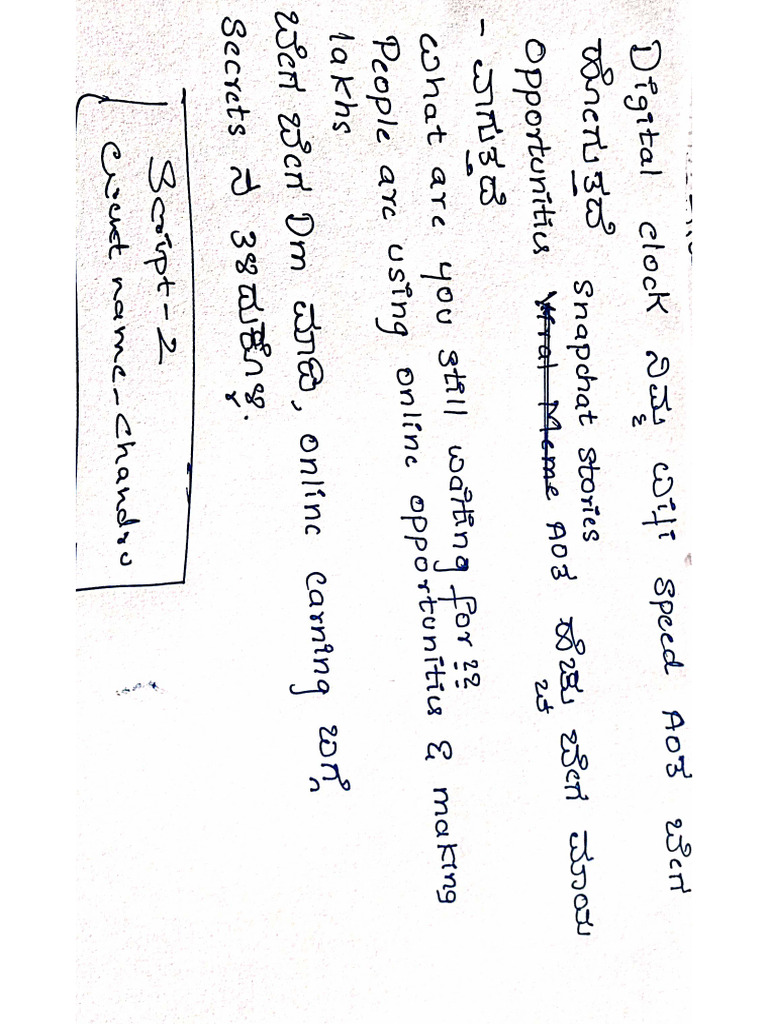 Digital clock ನಿಮ್ಮ ಬಳಿ speed ಗಿಂತ ಬೇಗ
ಹೋಗುತ್ತದೆ snapchat stories
opportunities Viral Meme ಗಿಂತ ಹೆಚ್ಚು ಬೇಗ ಮಾಯ
- ವಾಗುತ್ತದೆ
What are you still waiting for ??
People are using online opportunities & making
lakhs
ಬೇಗ ಬೇಗ Dm ಮಾಡಿ, online earning ಬಗ್ಗೆ
secrets ನ ತಿಳಿದುಕೊಳ್ಳಿ.
Script-2
Client name - Chandru